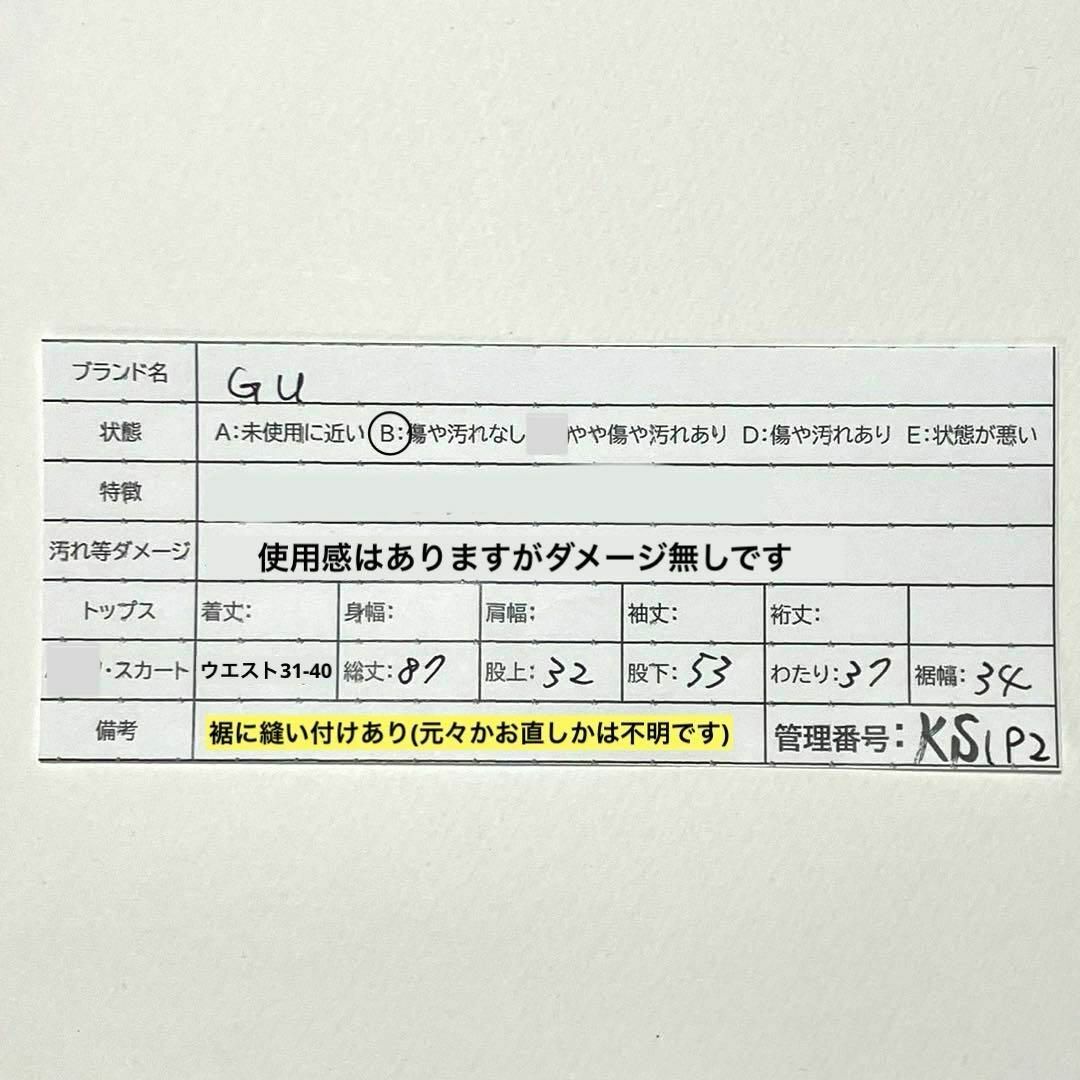 ブランド名 GU
状態 A:未使用に近い B:傷や汚れなし やや傷や汚れあり D:傷や汚れあり E:状態が悪い
特徴
汚れ等ダメージ 使用感はありますがダメージ無しです
トップス 着丈: 身幅: 肩幅: 袖丈: 裄丈:
・スカート ウエスト31-40 総丈:87 股上:32 股下:53 わたり:37 裾幅:34
備考 裾に縫い付けあり(元々かお直しかは不明です) 管理番号:KS1P2